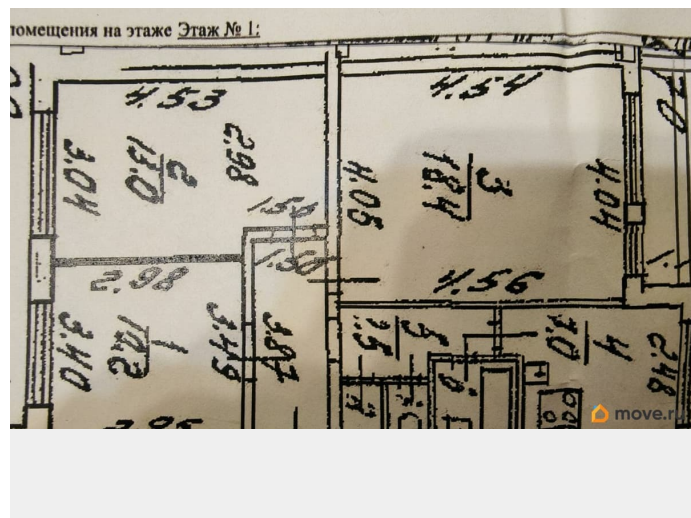 помещения на этаже Этаж № 1:
4.53
4.54
2.98
3.04
2
13.0
4.05
3
18.4
4.04
1.56
1.50
2.98
4.56
3.40
1
10.2
3.49
3.87
5
4
7.0
2.48
move.ru